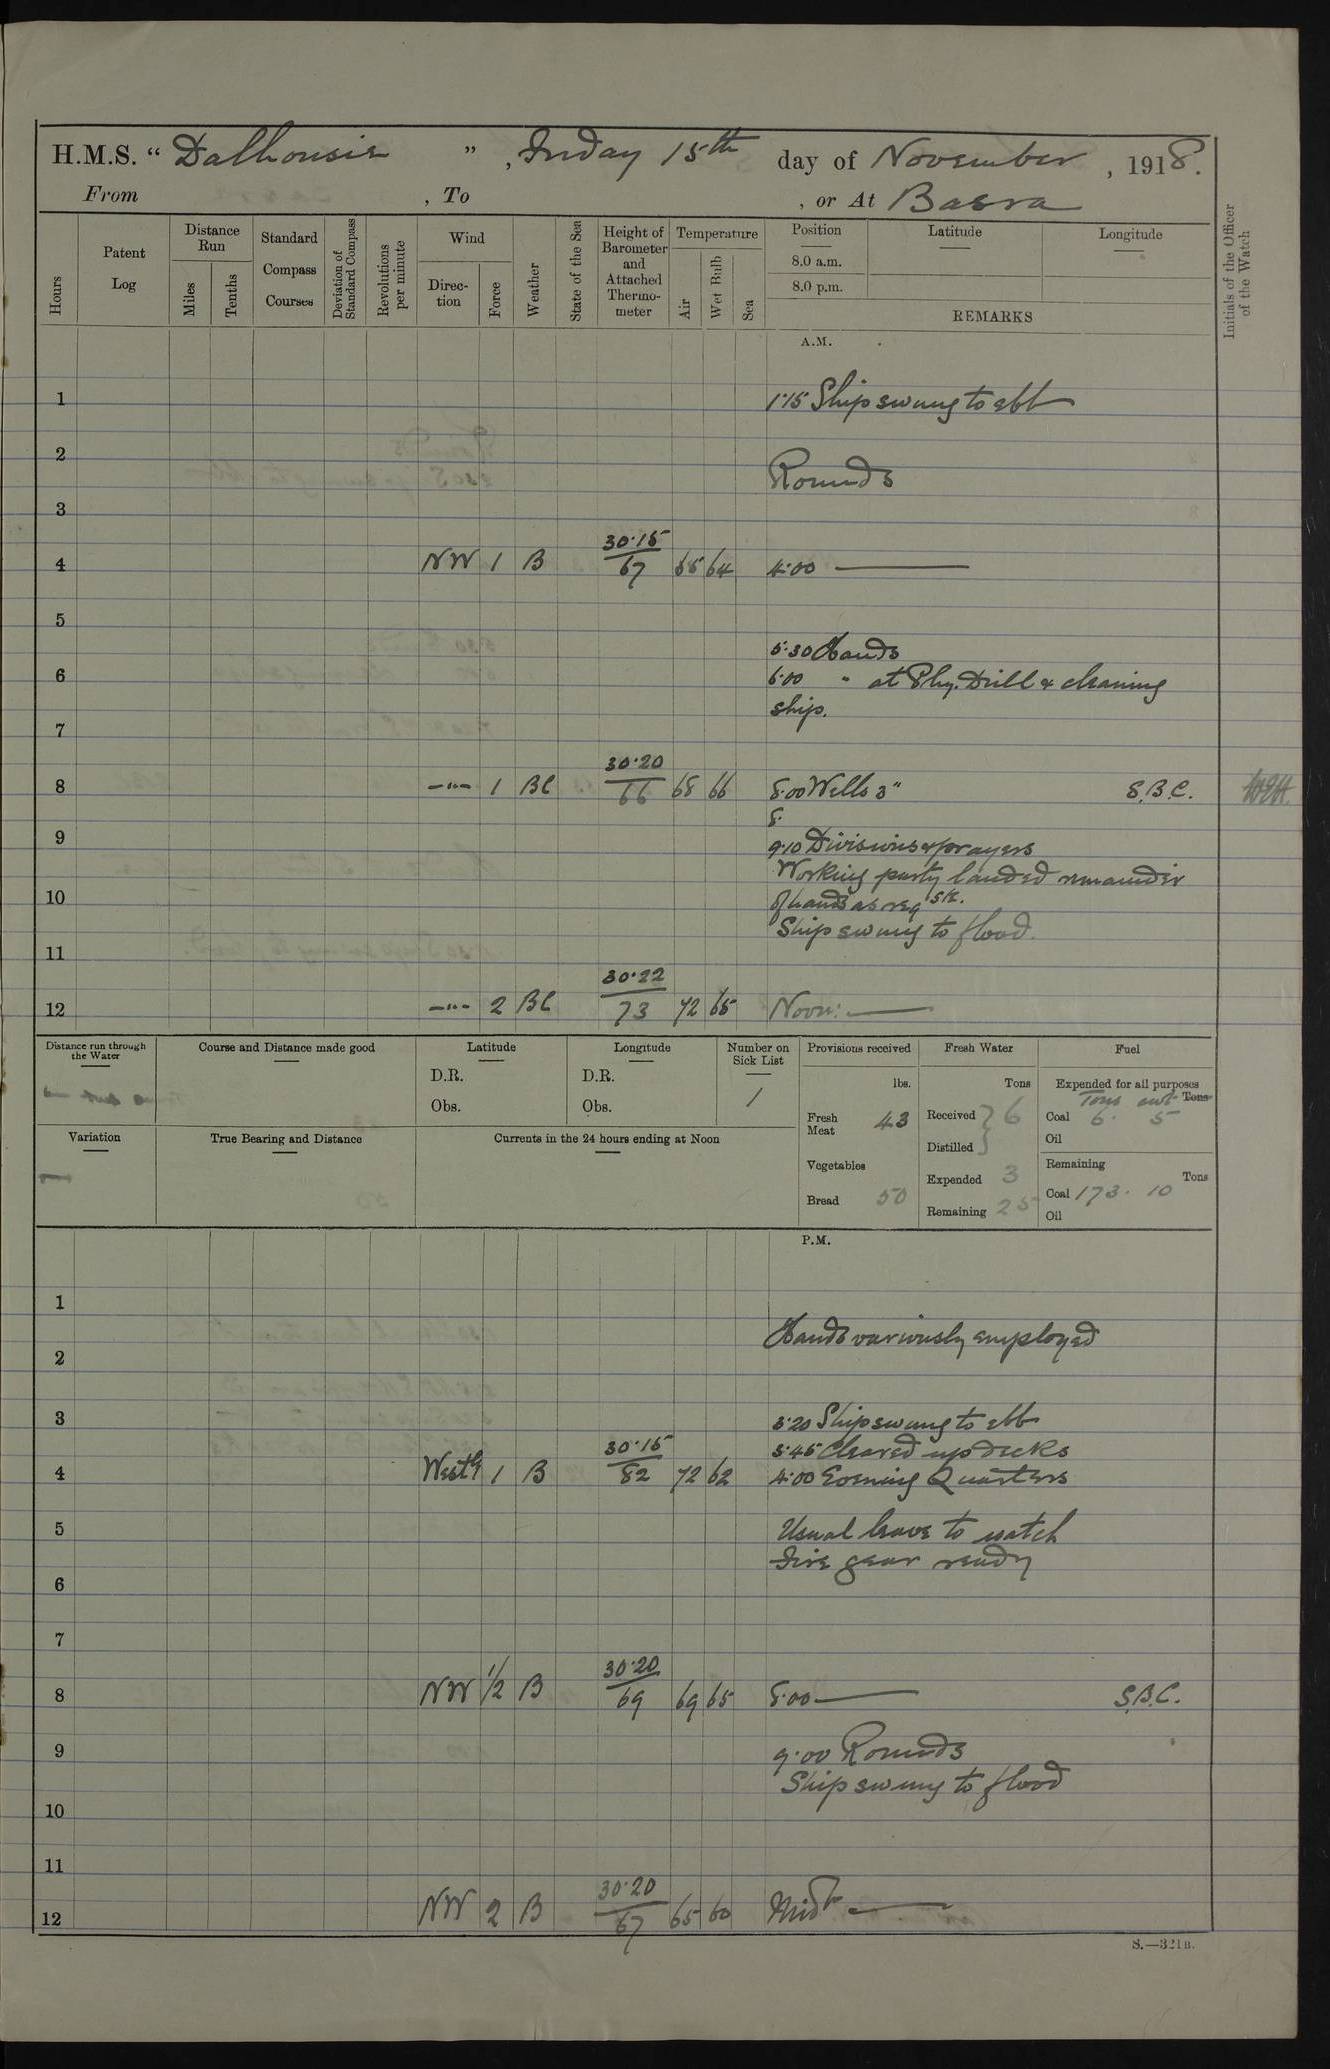 H.M.S. “ Dalhousie ” , Friday 15th day of November , 1918.
From , To , or At Basra
Hours
Patent Log
Distance Run
Miles
Tenths
Standard Compass Courses
Deviation of Standard Compass
Revolutions per minute
Wind
Direction
Force
Weather
State of the Sea
Height of Barometer and Attached Thermometer
Temperature
Air
Wet Bulb
Sea
Position Latitude Longitude
8.0 a.m.
8.0 p.m.
REMARKS
Initials of the Officer of the Watch
A.M.
1 1·15 Ship swung to ebb
2 Rounds
3
4 NW 1 B 30·15/67 65 64 4·00 ———
5
5·30 Hands
6 6·00 " at Phy. Drill & cleaning
ship.
7
8 —"— 1 BC 30·20/66 68 66 8·00 Wells 3" S.B.C.
8·
9 9·10 Divisions & prayers
Working party landed remainder
10 of hands as reqste.
Ship swung to flood.
11
12 —"— 2 BC 30·22/73 72 65 Noon: ———
Distance run through the Water
Course and Distance made good
Latitude
D.R.
Obs.
Longitude
D.R.
Obs.
Number on Sick List
1
Variation
True Bearing and Distance
Currents in the 24 hours ending at Noon
Provisions received
lbs.
Fresh Meat 43
Vegetables
Bread 50
Fresh Water
Tons
Received } 6
Distilled
Expended 3
Remaining 25
Fuel
Expended for all purposes
Tons cwt Tons
Coal 6. 5
Oil
Remaining
Tons
Coal 173. 10
Oil
P.M.
1
Hands variously employed
2
3 3·20 Ship swung to ebb
3·45 Cleared up decks
4 Westly 1 B 30·15/82 72 62 4·00 Evening Quarters
5 Usual leave to watch
Fire gear ready
6
7
8 NW 1/2 B 30·20/69 69 65 8·00 ——— S.B.C.
9 9·00 Rounds
Ship swung to flood
10
11
12 NW 2 B 30·20/67 65 60 Midt ———
S.—321B.